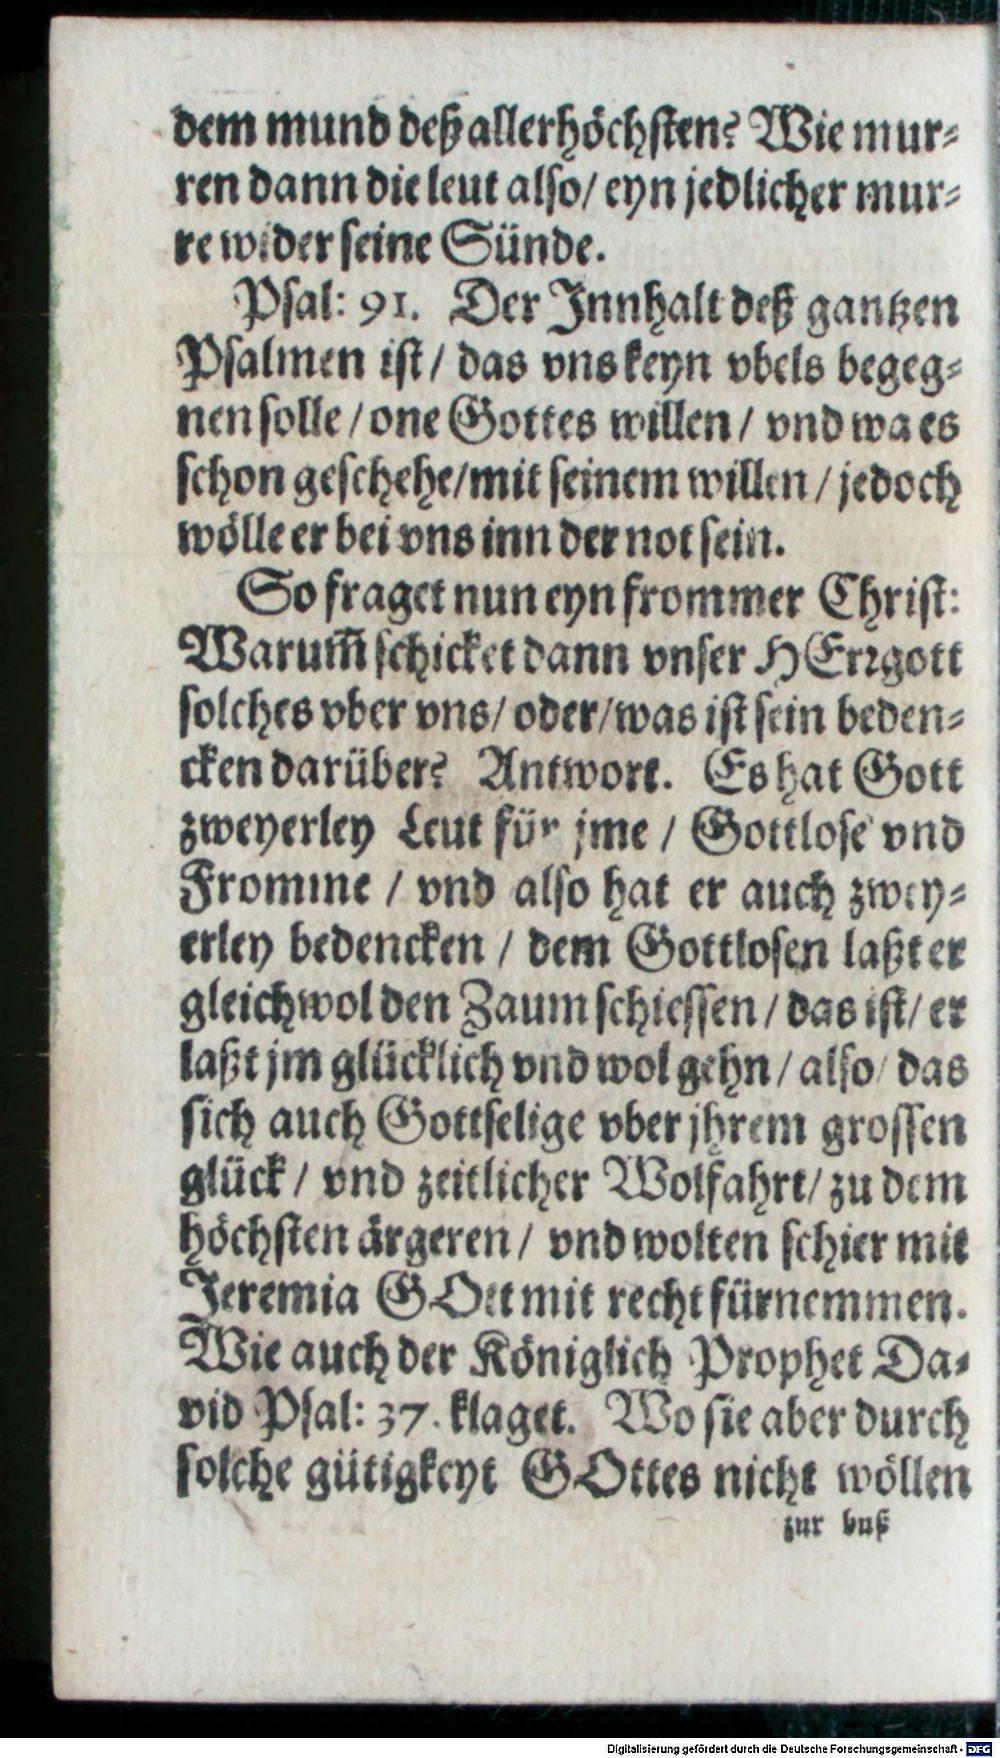 dem mund deß allerhöchsten? Wie mur⸗
ren dann die leut also/ eyn jedlicher mur⸗
re wider seine Sünde.
Psal: 91. Der Innhalt deß gantzen
Psalmen ist/ das vns keyn vbels begeg⸗
nen solle/ one Gottes willen/ vnd wa es
schon geschehe/ mit seinem willen/ jedoch
wölle er bei vns inn der not sein.
So fraget nun eyn frommer Christ:
Warum̃ schicket dann vnser HErrgott
solches vber vns/ oder/ was ist sein beden⸗
cken darüber? Antwort. Es hat Gott
zweyerley Leut für jme/ Gottlose vnd
Fromme/ vnd also hat er auch zwey⸗
erley bedencken/ dem Gottlosen laßt er
gleichwol den Zaum schiessen/ das ist/ er
laßt jm glücklich vnd wol gehn/ also/ das
sich auch Gottselige vber jhrem grossen
glück/ vnd zeitlicher Wolfahrt/ zu dem
höchsten ärgeren/ vnd wolten schier mit
Jeremia GOtt mit recht fürnemmen.
Wie auch der Königlich Prophet Da⸗
vid Psal: 37. klaget. Wo sie aber durch
solche gütigkeyt GOttes nicht wöllen
zur buß
Digitalisierung gefördert durch die Deutsche Forschungsgemeinschaft - DFG